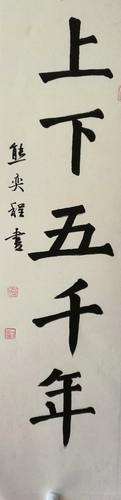 上下五千年
熊奕程書